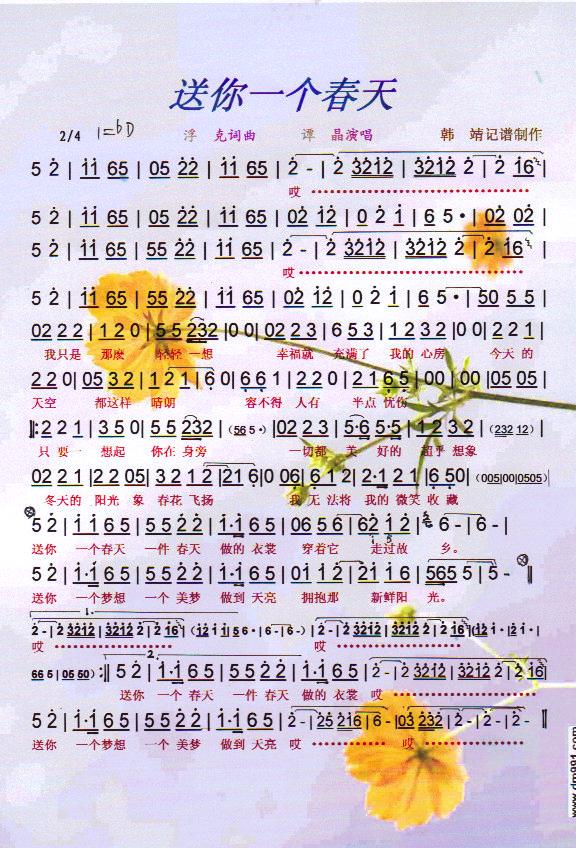 送你一个春天
2/4 1=bD 浮 克词曲 谭 晶演唱 韩 靖记谱制作
5 2 | 11 65 | 05 22 | 11 65 | 2 - | 2 3212 | 3212 2 | 2 16 |
哎
5 2 | 11 65 | 05 22 | 11 65 | 02 12 | 0 2 1 | 6 5 · | 02 02 |
5 2 | 11 65 | 55 22 | 11 65 | 2 - | 2 3212 | 3212 2 | 2 16 |
哎
5 2 | 11 65 | 55 22 | 11 65 | 02 12 | 0 2 1 | 6 5 · | 50 5 5 |
02 2 2 | 1 2 0 | 5 5 232 | 0 0 | 02 2 3 | 6 5 3 | 1 2 3 2 | 0 0 | 2 2 1 |
我只是 那麽 轻轻一想 幸福就 充满了 我的 心房 今天 的
2 2 0 | 05 3 2 | 1 2 1 | 6 0 | 6 6 1 | 2 2 0 | 2 1 6 5 | 00 | 00 | 05 05 |
天空 都这样 晴朗 容不得 人有 半点 忧伤
2 2 1 | 3 5 0 | 5 5 232 | (56 5 ·) | 02 2 3 | 5·6 5·5 | 1 2 3 2 | (232 12) |
只 要一 想起 你在 身旁 一切都 美 好的 超乎 想象
02 2 1 | 2 2 05 | 3 2 1 2 | 21 6 | 0 06 | 6 1 2 | 2·1 2 1 | 6 50 | (005|00|0505)
冬天的 阳光 象 春花 飞扬 我 无 法将 我的 微笑 收 藏
5 2 | 1 1 6 5 | 5 5 2 2 | 1·1 6 5 | 06 5 6 | 62 1 2 | 6 - | 6 - |
送你 一个春天 一件 春天 做的 衣裳 穿着它 走过故 乡。
5 2 | 1·1 6 5 | 5 5 2 2 | 1·1 6 5 | 01 1 2 | 21 1 6 | 565 5 | 5 -
送你 一个梦想 一个 美梦 做到 天亮 拥抱那 新鲜阳 光。
1.
2 - | 2 3212 | 3212 2 | 2 16 | (12 1 1 | 5 6 · | 6 - | 6 -) | 2 - | 2 3212 | 3212 2 | 2 16 | 12 1 · | 2 1 ·
哎 哎
2.
66 5 | 05 50) :‖ 5 2 | 1·1 6 5 | 5 5 2 2 | 1·1 6 5 | 2 - | 2 3212 | 3212 2 | 2 16
送你 一个 春天 一件 春天 做的 衣裳 哎
5 2 | 1·1 6 5 | 5 5 2 2 | 1·1 6 5 | 2 - | 25 216 | 6 - | 03 232 | 2 - | 2 - | 2 - ‖
送你 一个梦想 一个 美梦 做到 天亮 哎 哎
www.dm991.com